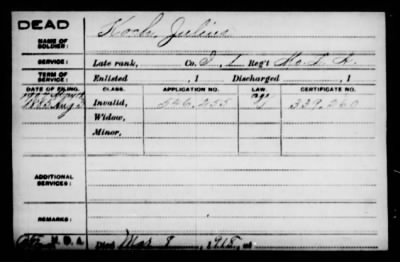 DEAD
NAME OF SOLDIER: Koch, Julius
SERVICE: Late rank, Co. I, 1 Reg't Mo. L. A.
TERM OF SERVICE: Enlisted , 1 Discharged , 1
DATE OF FILING. CLASS. APPLICATION NO. LAW. CERTIFICATE NO.
1885 Aug Invalid, 546,255 339,260
Widow,
Minor,
ADDITIONAL SERVICES:
REMARKS:
Died Mar 8, 1915, at